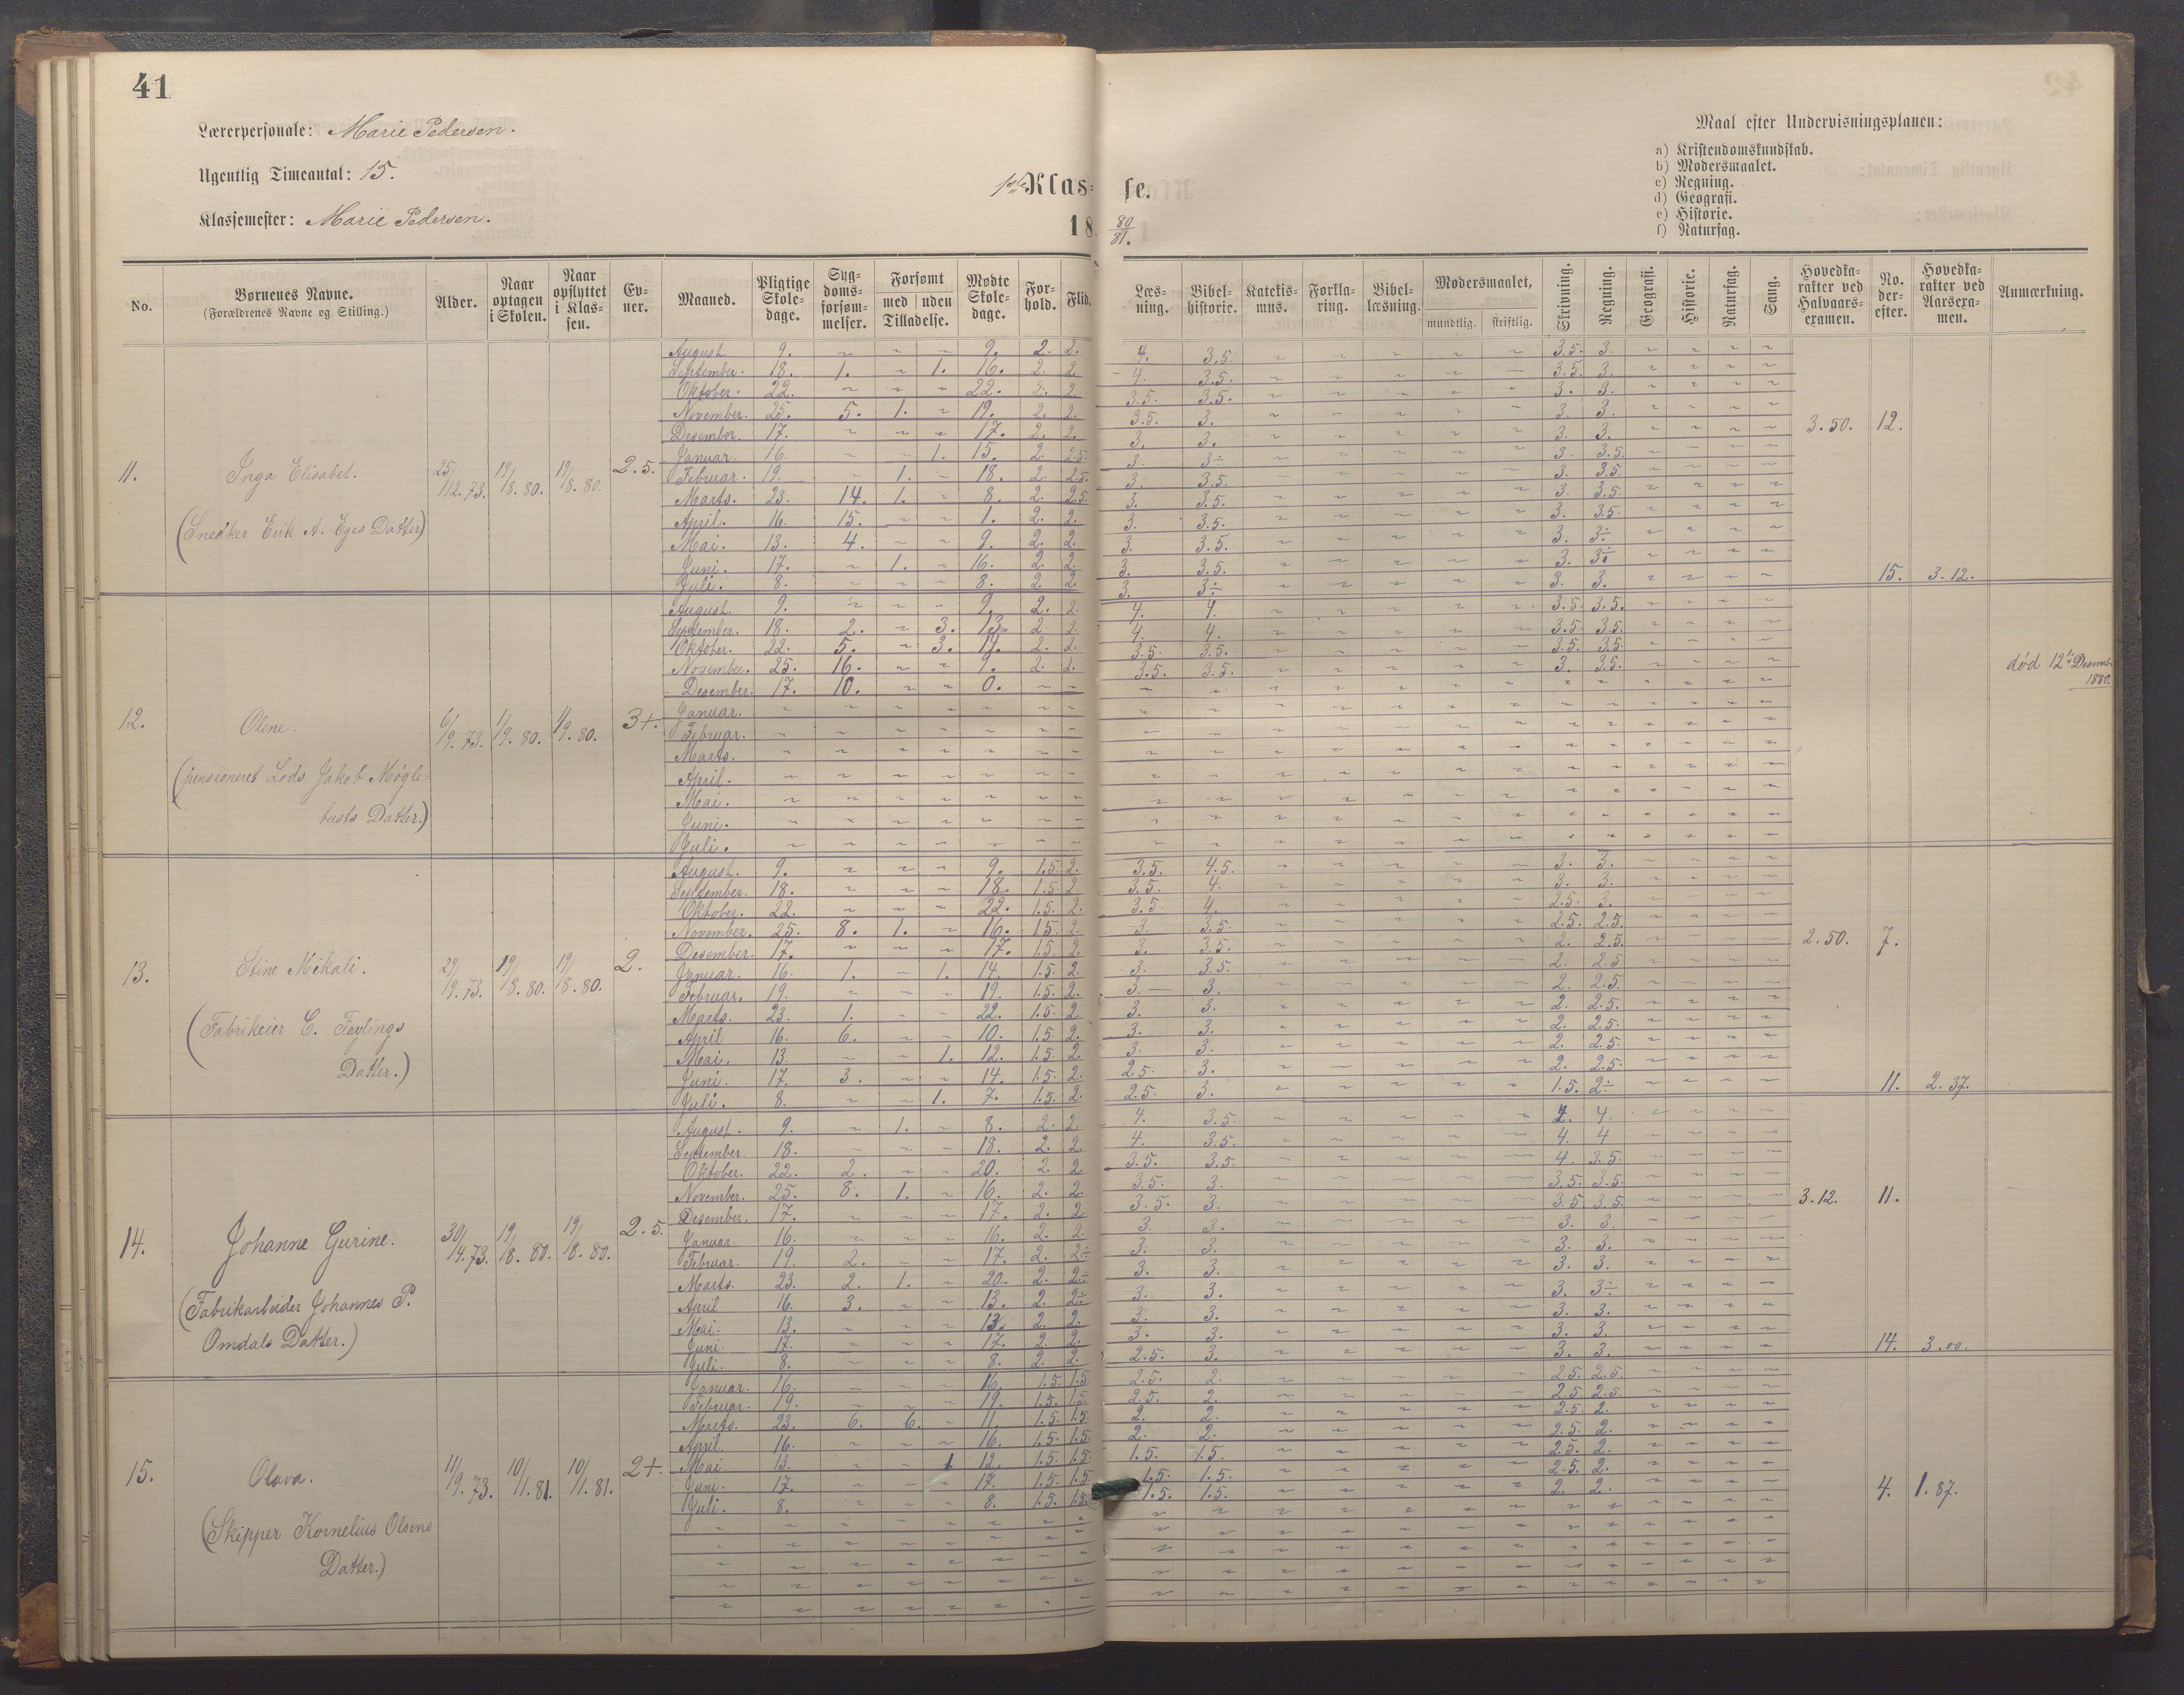 41
Lærerpersonale: Marie Pedersen.
Ugentlig Timeantal: 15.
Klassemester: Marie Pedersen.
1ste Klasse.
18 80/81.
Maal efter Undervisningsplanen:
a) Kristendomskundskab.
b) Modersmaalet.
c) Regning.
d) Geografi.
e) Historie.
f) Naturfag.
No. Børnenes Navne. (Forældrenes Navne og Stilling.) Alder. Naar optagen i Skolen. Naar opflyttet i Klassen. Evner. Maaned. Pligtige Skoledage. Sygdomsforsømmelser. Forsømt med uden Tilladelse. Mødte Skoledage. Forhold. Flid. Læsning. Bibelhistorie. Katekismus. Forklaring. Bibellæsning. Modersmaalet, mundtlig. skriftlig. Skrivning. Regning. Geografi. Historie. Naturfag. Sang. Hovedkarakter ved Halvaarsexamen. No. derefter. Hovedkarakter ved Aarsexamen. Anmærkning.
11. Inga Elisabet. 25/12.73. 19/8.80. 19/8.80. 2.5.
(Snedker Erik A. Eges Datter)
August 9. ~ ~ ~ 9. 2. 2. 4. 3.5. 3.5. 3.
September. 18. 1. ~ 1. 16. 2. 2. 4. 3.5. 3.5. 3.
Oktober. 22. ~ ~ ~ 22. 2. 2. 3.5. 3.5. 3. 3.
November. 25. 5. 1. ~ 19. 2. 2. 3.5. 3. 3. 3.
Desember. 17. ~ ~ ~ 17. 2. 2. 3. 3. 3. 3. 3.50. 12.
Januar. 16. ~ ~ 1. 15. 2. 2.5. 3. 3÷ 3. 3.5.
Februar. 19. ~ 1. ~ 18. 2. 2.5. 3. 3.5. 3. 3.5.
Marts. 23. 14. 1. ~ 8. 2. 2.5. 3. 3.5. 3. 3.5.
April. 16. 15. ~ ~ 1. 2. 2. 3. 3.5. 3. 3.5.
Mai. 13. 4. ~ ~ 9. 2. 2. 3. 3.5. 3. 3÷
Juni. 17. ~ 1. ~ 16. 2. 2. 3. 3.5. 3. 3÷
Juli. 8. ~ ~ ~ 8. 2. 2. 3. 3÷ 3. 3. 15. 3.12.
12. Olene. 6/9.73. 1/9.80. 1/9.80. 3+.
(pensioneret Lods Jakob Møglebusts Datter.)
August. 9. ~ ~ ~ 9. 2. 2. 4. 4. 3.5. 3.5.
September. 18. 2. ~ 3. 13. 2. 2. 4. 4. 3.5. 3.5.
Oktober. 22. 5. ~ 3. 14. 2. 2. 3.5. 3.5. 3.5. 3.5.
November. 25. 16. ~ ~ 9. 2. 2. 3.5. 3.5. 3. 3.5. død 12te Desemb. 1880.
Desember. 17. 10. ~ ~ 0.
Januar.
Februar.
Marts.
April.
Mai.
Juni.
Juli.
13. Stine Mikali. 29/9.73. 19/8.80. 19/8.80. 2.
(Fabrikeier C. Feylings Datter.)
August. 9. ~ ~ ~ 9. 1.5. 2. 3.5. 4.5. 3. 3.
September. 18. ~ ~ ~ 18. 1.5. 2 3.5. 4. 3. 3.
Oktober. 22. ~ ~ ~ 22. 1.5. 2. 3.5 4. 2.5. 3.
November. 25. 8. 1. ~ 16. 1.5. 2. 3. 3.5. 2.5. 2.5.
Desember. 17. ~ ~ ~ 17. 1.5 2. 3. 3.5. 2. 2.5. 2.50. 7.
Januar. 16. 1. ~ 1. 14. 1.5. 2. 3. 3.5. 2. 2.5
Februar. 19. ~ ~ ~ 19. 1.5. 2. 3. 3. 2. 2.5.
Marts. 23. 1. ~ ~ 22. 1.5. 2. 3. 3. 2. 2.5.
April 16. 6. ~ ~ 10. 1.5. 2. 3. 3. 2. 2.5.
Mai. 13. ~ ~ 1. 12. 1.5. 2. 3. 3. 2. 2.5.
Juni. 17. 3. ~ ~ 14. 1.5. 2. 2.5. 3. 2. 2.5.
Juli. 8. ~ ~ 1. 7. 1.5. 2. 2.5. 3. 1.5. 2÷ 11. 2.37.
14. Johanne Gurine. 30/4.73. 19/8.80. 19/8.80. 2.5.
(Fabrikarbeider Johannes P. Omdals Datter.)
August. 9. ~ 1. ~ 8. 2. 2 4. 3.5. 4. 4.
September. 18. ~ ~ ~ 18. 2. 2. 4. 3.5. 4. 4
Oktober. 22. 2. ~ ~ 20. 2. 2. 3.5. 3.5. 4. 3.5.
November. 25. 8. 1. ~ 16. 2. 2. 3.5. 3. 3.5. 3.5.
Desember. 17. ~ ~ ~ 17. 2. 2 3.5. 3. 3.5 3.5. 3.12. 11.
Januar. 16. ~ ~ ~ 16. 2. 2. 3. 3. 3. 3.
Februar. 19. 2. ~ ~ 17. 2. 2÷ 3. 3. 3. 3.
Marts. 23. 2. 1. ~ 20. 2. 2÷ 3. 3. 3. 3.
April 16. 3. ~ ~ 13. 2. 2÷ 3. 3. 3. 3÷
Mai. 13. ~ ~ ~ 13. 2. 2. 3. 3. 3. 3.
Juni. 17. ~ ~ ~ 17. 2. 2. 3. 3. 3. 3.
Juli. 8. ~ ~ ~ 8. 2. 2. 2.5. 3. 3. 3. 14. 3.00.
15. Olava. 11/9.73. 10/11.81. 10/11.81. 2+.
(Skipper Kornelius Olsens Datter.)
Januar. 16. ~ ~ ~ 16. 1.5. 1.5. 2.5. 2. 2.5. 2.5.
Februar. 19. ~ ~ ~ 19. 1.5. 1.5. 2.5. 2. 2.5. 2.5.
Marts. 23. 6. 6. ~ 11. 1.5. 1.5 2. 2. 2.5. 2.
April. 16. ~ ~ ~ 16. 1.5. 1.5. 2. 2. 2.5. 2.
Mai 13. ~ ~ 1 12. 1.5. 1.5. 1.5. 1.5. 2.5. 2.
Juni. 17. ~ ~ ~ 17. 1.5. 1.5. 1.5. 1.5. 2.5. 2.
Juli. 8. ~ ~ ~ 8. 1.5. 1.5. 1.5. 1.5. 2. 2. 4. 1.87.